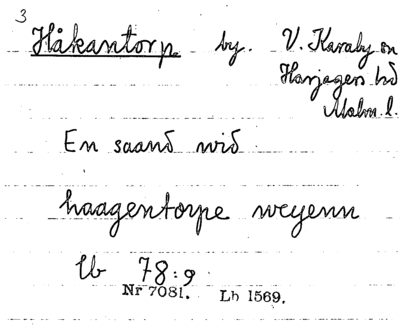 3
Håkantorp by. V. Karaby sn
Harjagers hd
Malm. l.
En saand wid
haagentorpe weyenn
Lb 78:9
Nr 7081. Lh 1569.